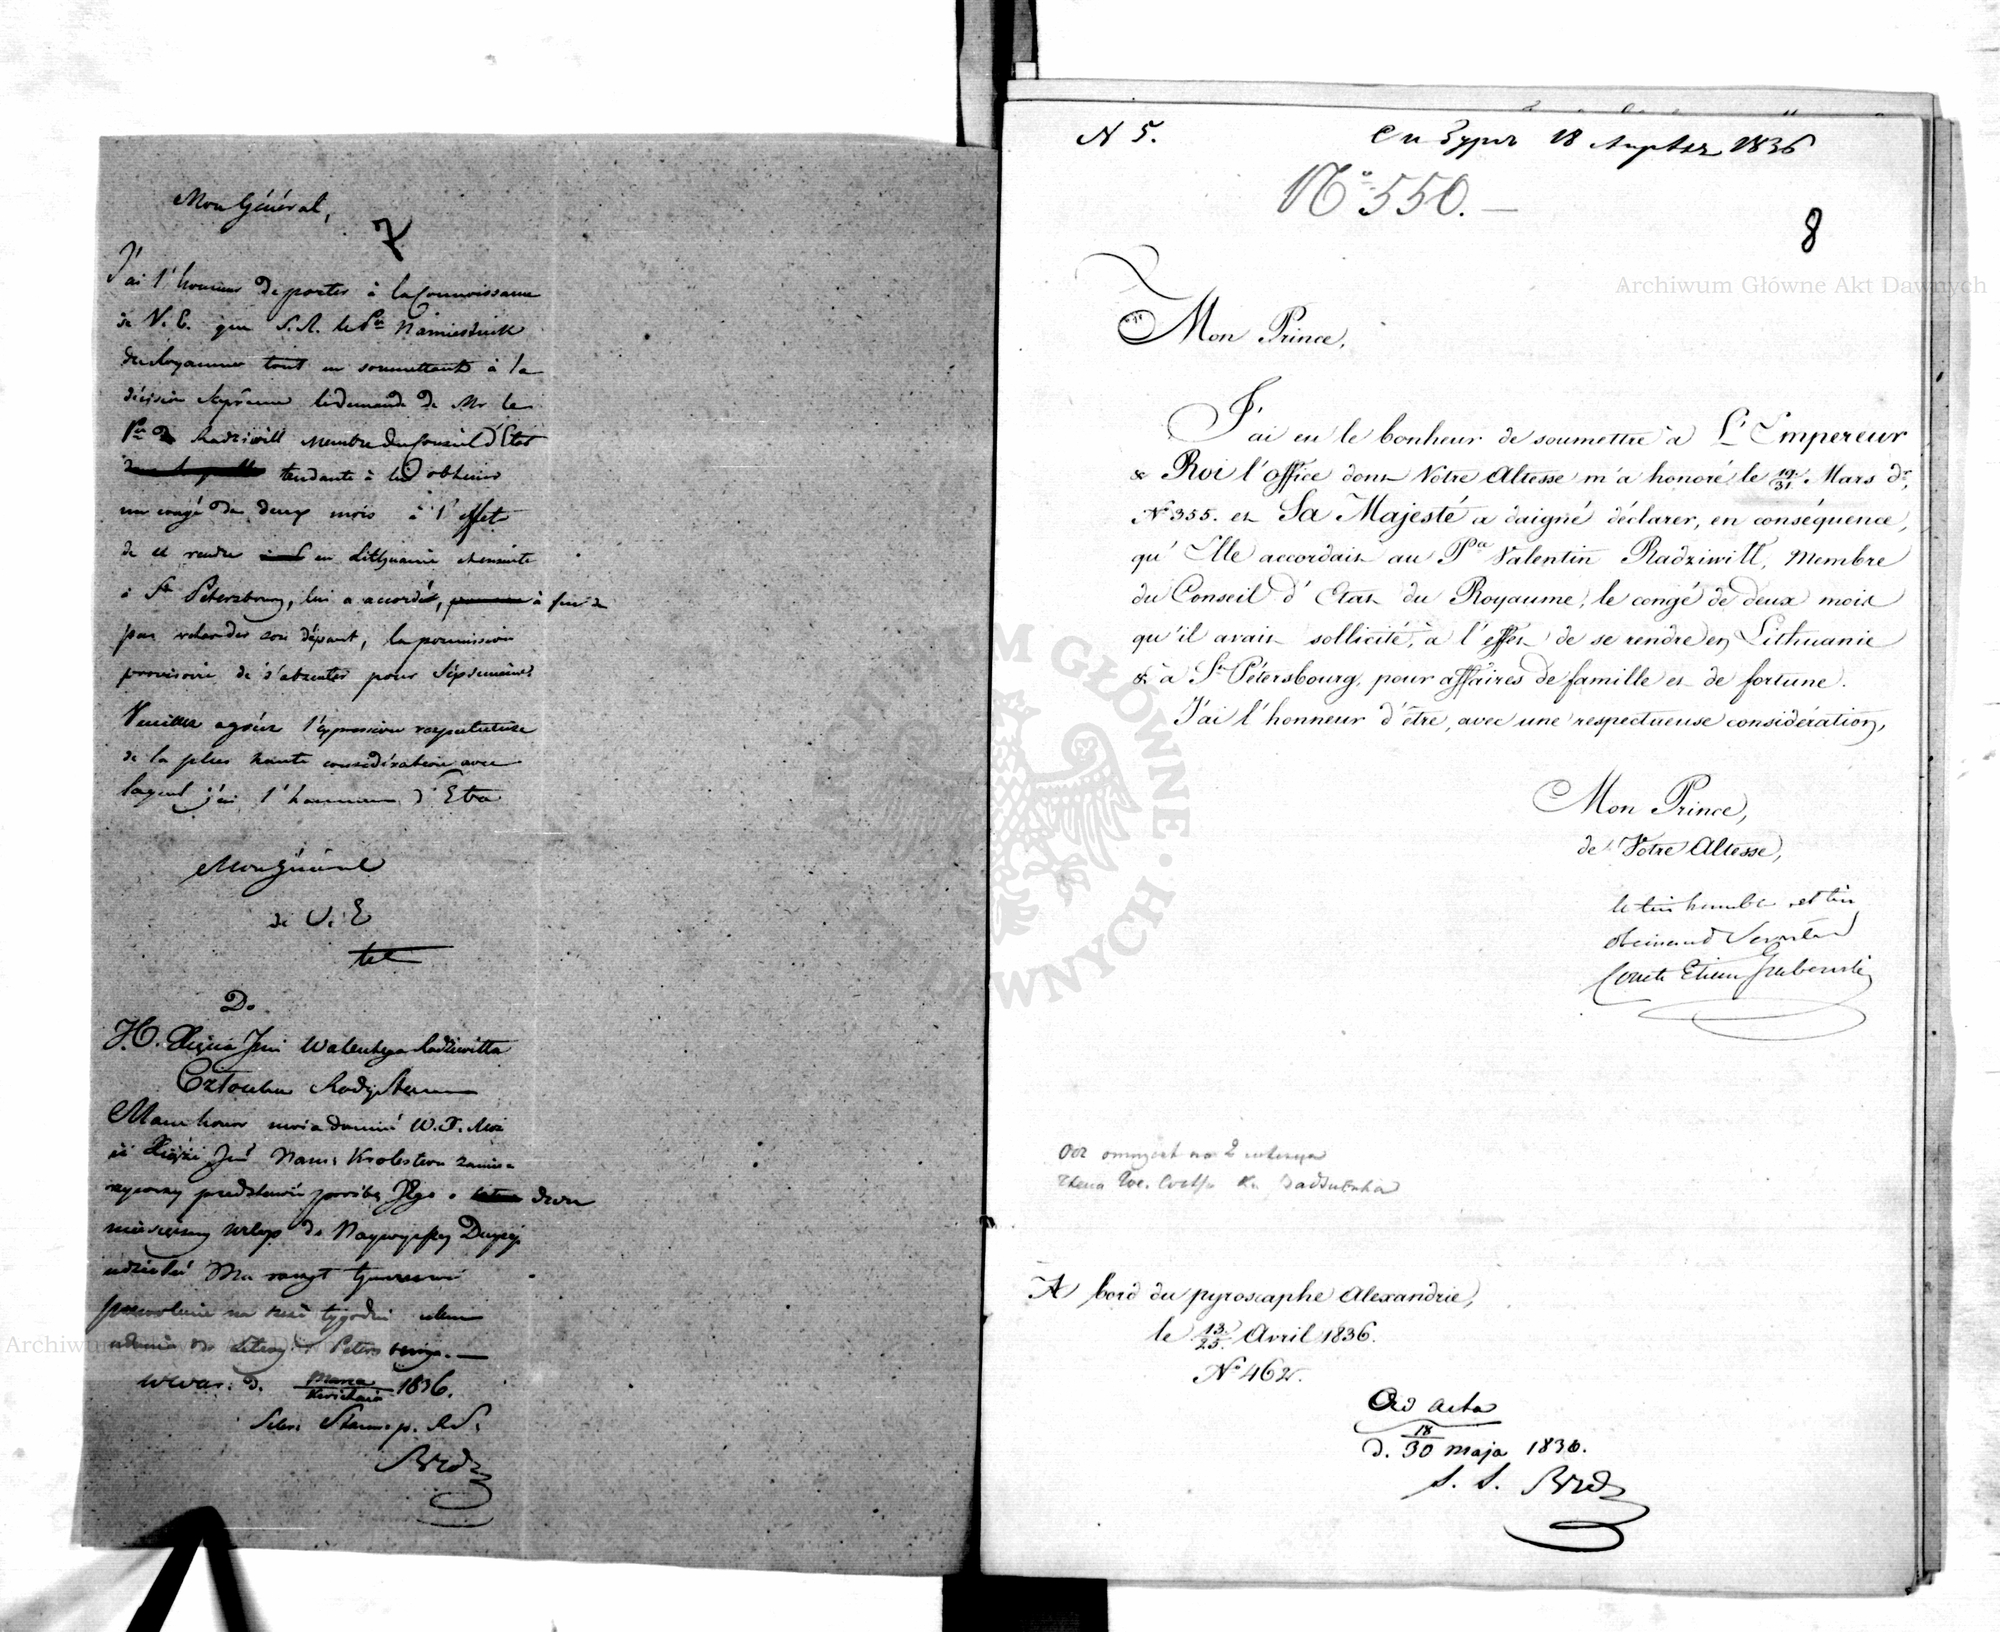 Mon Général,
7
J'ai l'honneur de porter à la connoissance
de V. E. que S. A. le Pce Namiestnik
du Royaume tout en soumettant à la
décision Suprême la demande de Mr le
Pce Radziwill Membre du Conseil d'Etat
tendante à lui obtenir
un congé de deux mois à l'effet
de se rendre en Lithuanie et ensuite
à St Pétersbourg, lui a accordé, à fin de
pas retarder son départ, la permission
provisoire de s'absenter pour semaines
Veuillez agréer l'expression respectueuse
de la plus haute considération avec
laquel j'ai l'honneur d'Etre
Mon Général
de V. E
Do
J.O. Xięcia Jmci Walentego Radziwiłła
Członka Rady Stanu
Mam honor uwiadomić W. X. Mość
iż Xiąże Jmć Nam: Królestwa
przedstawić prośbę Jego o dwu
miesięczny urlop do Naywyższey Decyzyi
udzielić Mu raczył tymczasowe
pozwolenie na sześć tygodni celem
udania do Litwy i Petersburga. —
w War: d. Marca/Kwietnia 1836.
Sekr: Stanu p. RS:
N 5.
18 Апреля 1836
No 550. —
8
Archiwum Główne Akt Dawnych
Mon Prince,
J'ai eu le bonheur de soumettre à L'Empereur
& Roi l'office dont Votre Altesse m'a honoré le 19/31 Mars dr,
No 355. et Sa Majesté a daigné déclarer, en conséquence,
qu'Elle accordait au Pce Valentin Radziwill, Membre
du Conseil d'Etat du Royaume, le congé de deux mois
qu'il avait sollicité, à l'effet de se rendre en Lithuanie
& à St Pétersbourg, pour affaires de famille et de fortune.
J'ai l'honneur d'être, avec une respectueuse considération,
Mon Prince,
de Votre Altesse,
le très humble et très
obéissant Serviteur
Comte Etienne Grabowski
на 2 месяца
Члена Гос. Совета Кн. Радзивила
A bord du pyroscaphe Alexandrie,
le 13/25 Avril 1836.
No 462.
Ad acta
d. 18/30 maja 1836.
S. S.
ARCHIWUM GŁÓWNE AKT DAWNYCH
Archiwum Główne Akt Dawnych